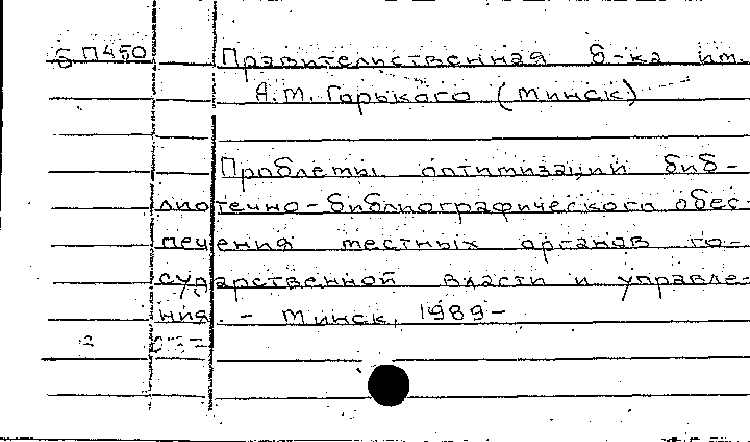 Б П450 Правительственная б-ка им.
А.М. Горького (Минск)
Проблемы оптимизации биб-
лиотечно-библиографического обес-
печения местных органов го-
сударственной власти и управле-
ния. - Минск, 1989-
2